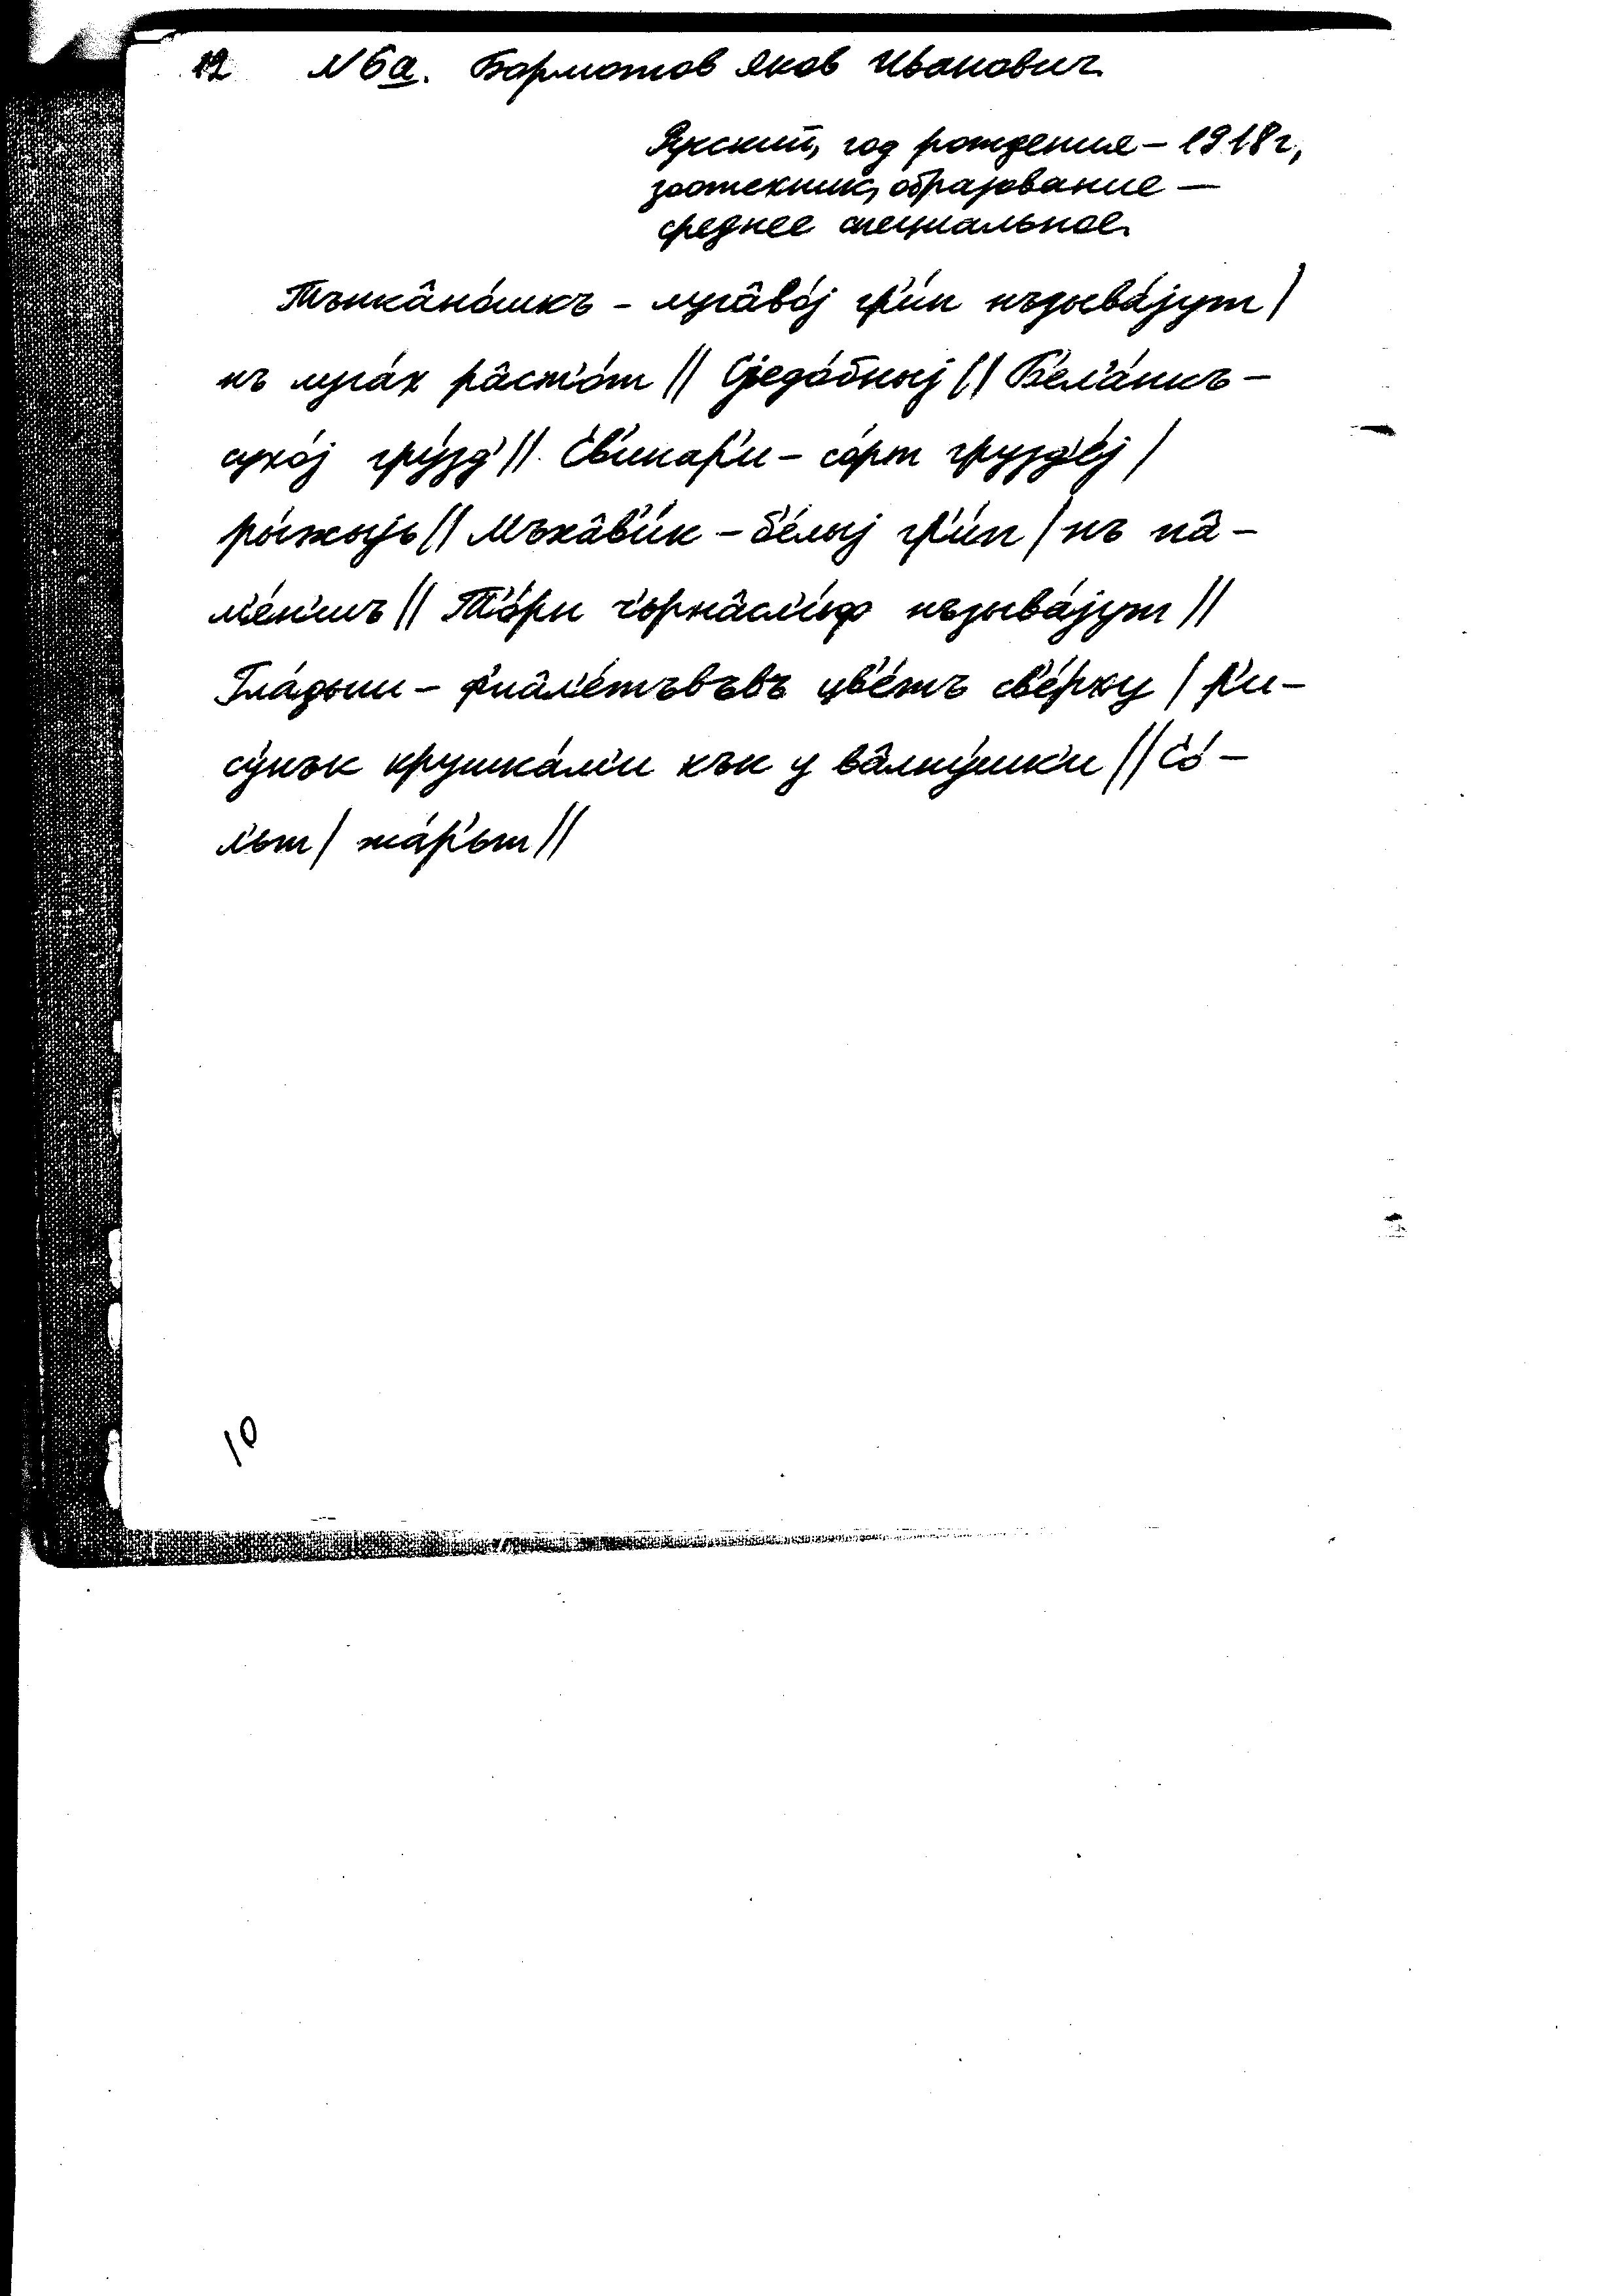 12 №6а. Бормотов Яков Иванович.
Русский, год рождения – 1918г,
зоотехник, образование –
среднее специальное.
Тънкâно́шкъ – лугâво́j гр'и́п нъзыва́jут /
нъ луга́х рâст'о́т // Сjедо́бныj // Б'ел'а́нкъ –
сухо́j гру́зд' // С'в'инар'и – со́рт грузд'е́j /
ры́жыjь // Мъхâв'и́к – б'е́лыj гр'и́п / нъ пâ–
л'е́н'иш // Т'о́рн ч'ьрнâсл'и́ф нъзыва́jут //
Гла́дыши – ф'иâл'е́тъвъвъ цв'е́тъ св'е́рху / р'и–
су́нък кружка́м'и кък у вâлну́шк'и // Со́–
л'ьт / жа́р'ьт //
10